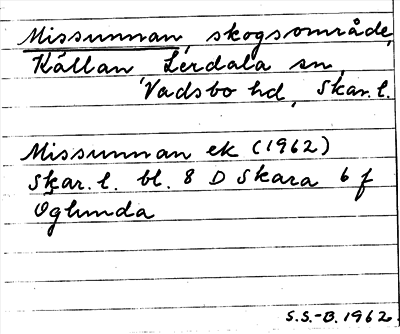 Missunnan, skogsområde,
Källan Lerdala sn,
Vadsbo hd, Skar. l.
Missunnan ek (1962)
Skar. l. bl. 8 D Skara 6 f
Öglunda
S.S.-B. 1962.